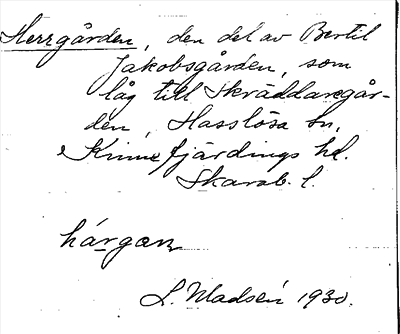 Herrgården, den del av Bertil
Jakobsgården, som
låg till Skräddaregår-
den, Hasslösa sn,
Kinnefjärdings hd.
Skarab. l.
hárgan
L. Madsén 1930.